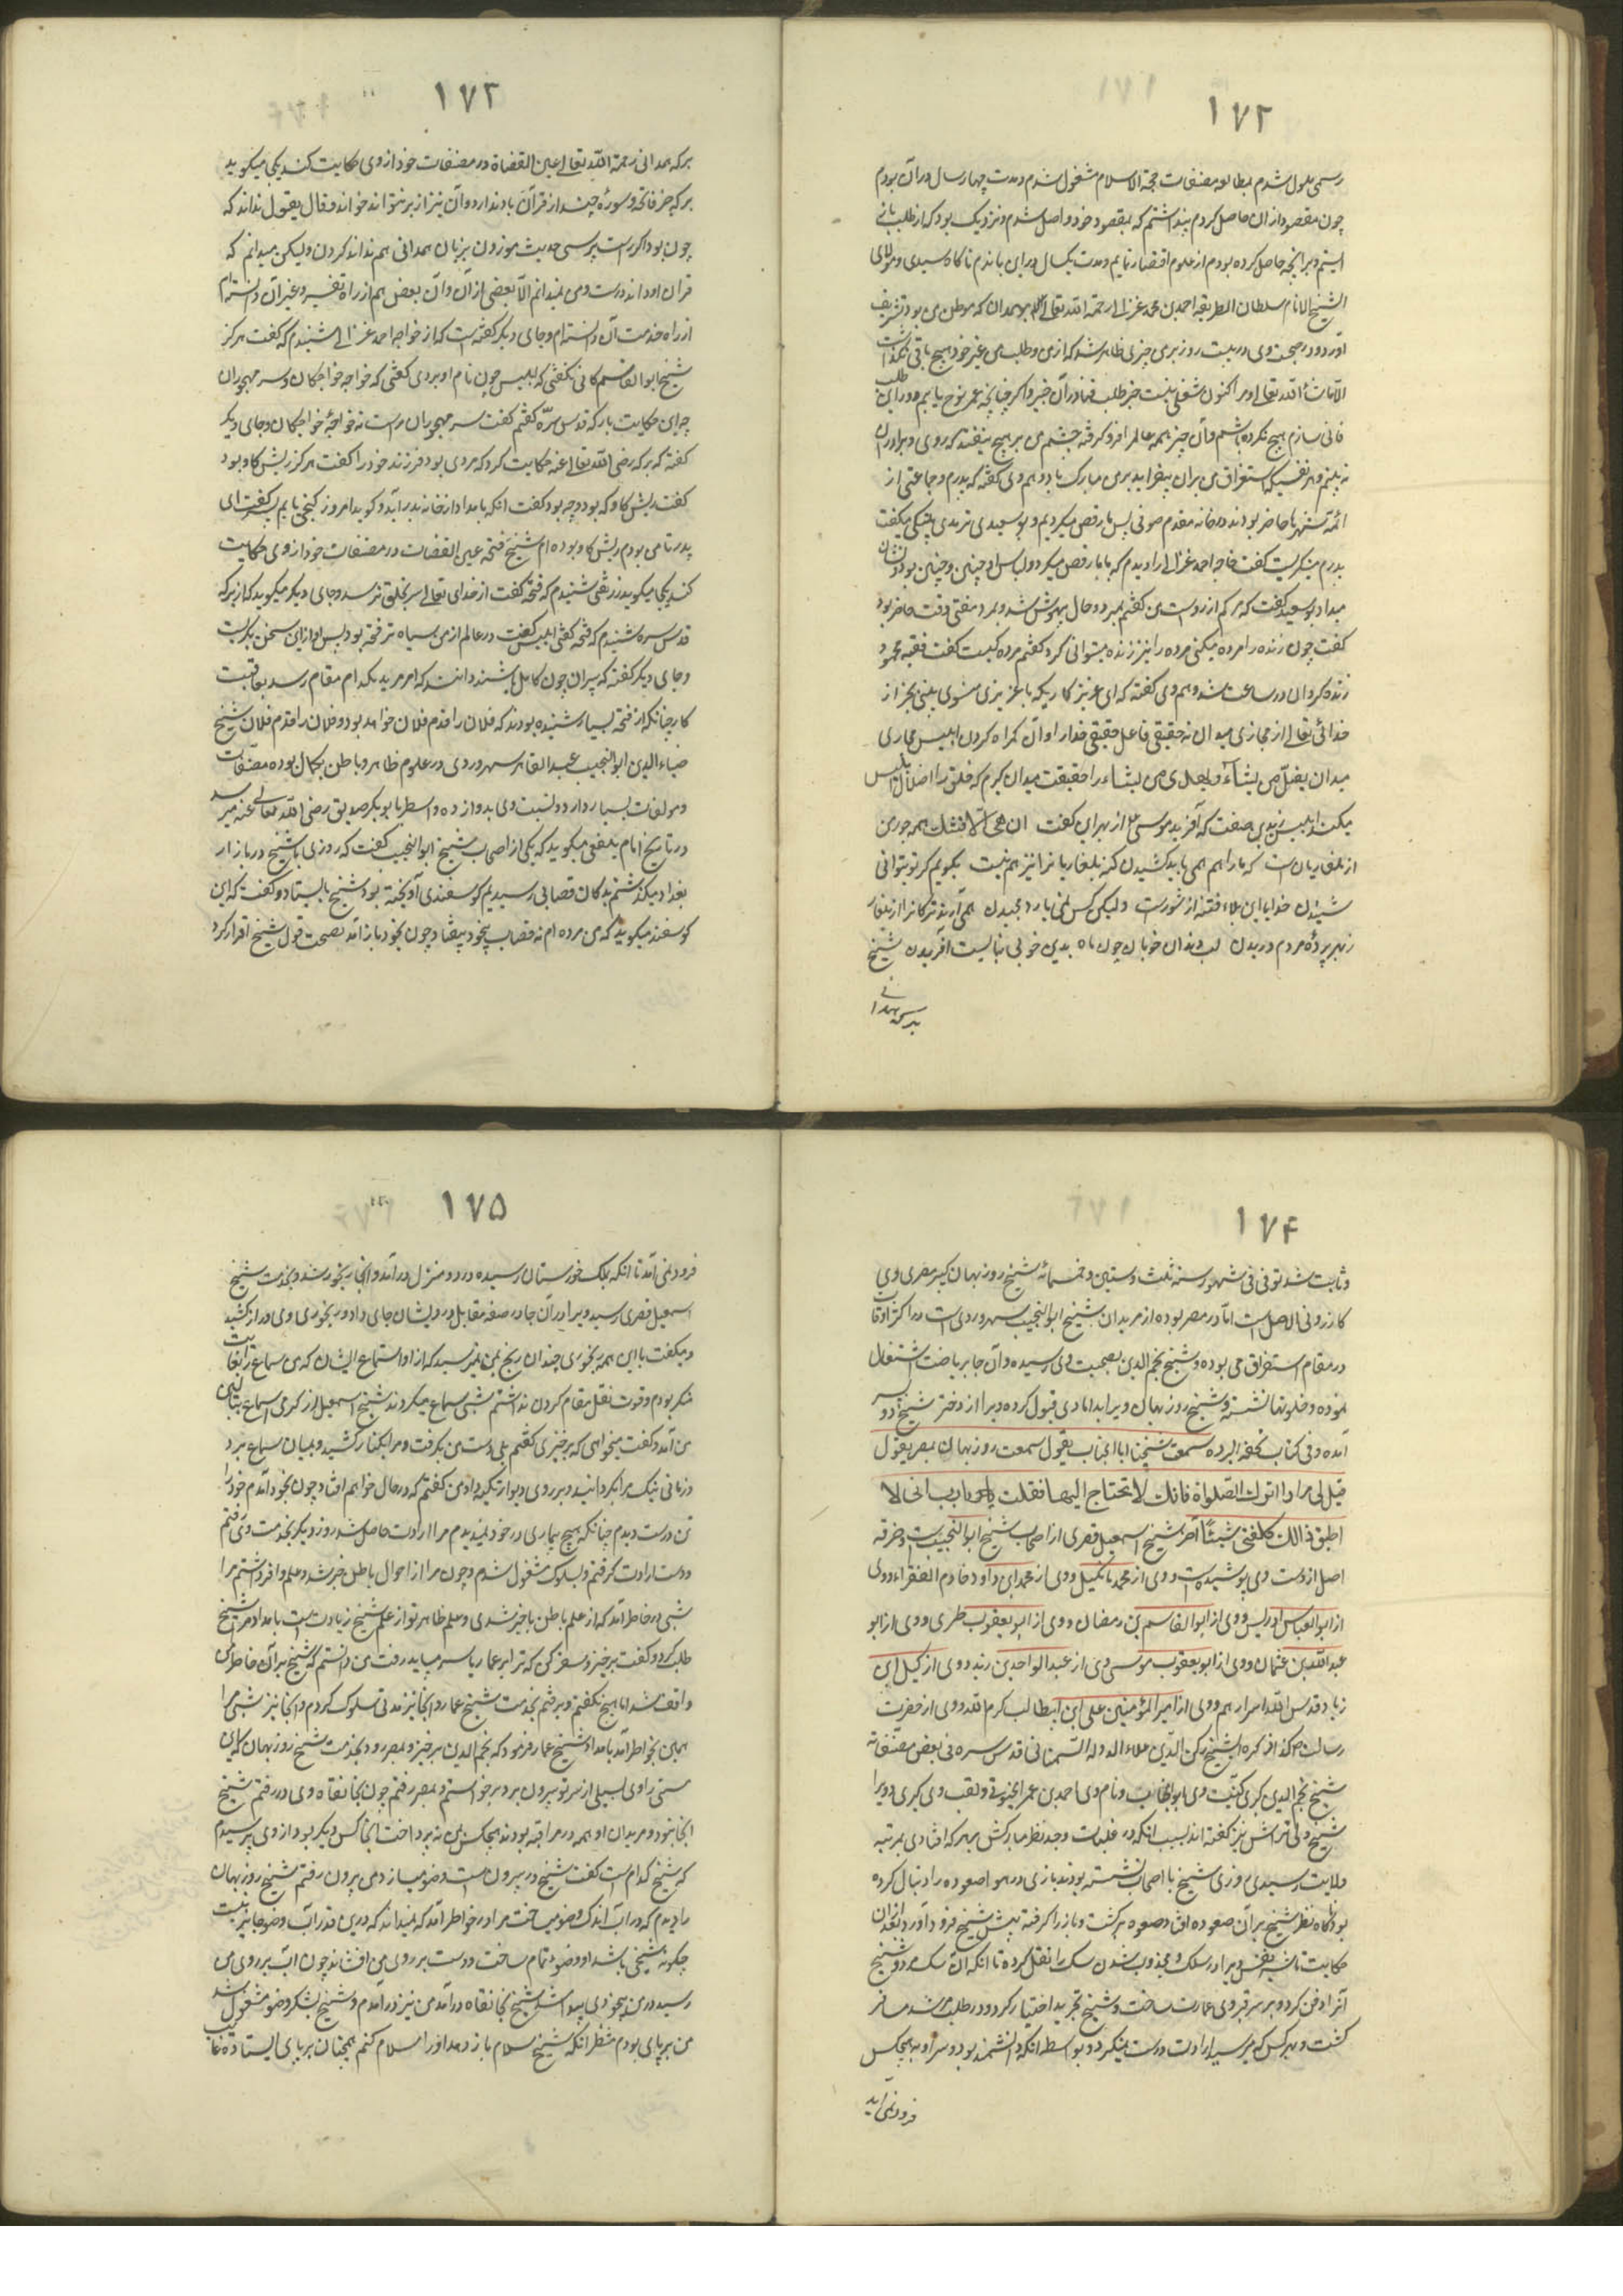 ۱۷۲
رسمی ملول شدم بمطالعه مصنفات حجة الاسلام مشغول شدم و مدت چهار سال در آن بودم
چون مقصود از آن حاصل کردم پنداشتم که بمقصود خود واصل شدم و نزدیک بود که از طلب بازی
ایستم و بر آنچه حاصل کرده بودم از علوم اقتصار نمایم و مدت یکسال در این بماندم ناگاه سیدی و مولای
الشیخ الامام سلطان الطریقه احمد بن محمد غزالی رحمة الله تعالی بهمدان که موطن من بود تشریف
آورد و در صحبت وی در بیست روز بر من چیزی ظاهر شد که از من و طلب من غیر خود هیچ باقی نگذاشت
الا ماشاء الله تعالی و مرا اکنون شغلی نیست جز طلب فنا در آن چیز و اگر چنانچه عمر نوح یابم و در این طلب
فانی سازم هیچ نکرده باشم و آن چیز همه عالم را فرو گرفته چشم من بر هیچ نیفتد که روی ویرا در آن
نه بینم و هر نفسی که استغراق من بر آن نیفزاید بر من مبارک باد و هم وی گفته که پدرم و جماعتی از
ائمه شهر ما حاضر بودند در خانه مقدم صوفی پس ما رقص میکردیم و بوسعید ترمدی بیتکی میگفت
پدرم بنگریست گفت خواجه احمد غزالی را دیدم که با ما رقص میکرد و لباس او چنین و چنین بود و نشان
میداد بوسعید گفت که مرگم آرزوست من گفتم بمیر در حال بیهوش شد و بمرد مفتی وقت حاضر بود
گفت چون زنده را مرده میکنی مرده را نیز زنده میتوانی کرد گفتم مرده کیست گفت فقیه محمود
زنده کردم در ساعت زنده شد و هم وی گفته که ای عزیز کاریکه با غیری منسوب بینی بجز از
خدای تعالی از مجازی میدان نه حقیقی فاعل حقیقی خدا را دان گمراه کردن ابلیس مجازی
میدان یضل من یشاء و یهدی من یشاء را حقیقت میدان گیرم که خلق را اضلال ابلیس
میکند ابلیس را بدین صفت که آفرید موسی ع از بهر این گفت ان هی الا فتنتک همه جور من
از بلغاریان است که مادام همی باید کشیدن گنه بلغاریان را نیز هم نیست بگویم گر تو بتوانی
شنیدن خدایا این بلا و فتنه از تست ولیکن کس نمی یارد چخیدن همی آرند ترکان را ز بلغار
ز بهر پرده مردم دریدن لب و دندان خوبان چون ماه بدین خوبی نبایست آفریدن شیخ
برکه همدانی
۱۷۳
برکه همدانی رحمة الله تعالی عین القضاة در مصنفات خود از وی حکایت کند یکجا میگوید
برکه جز فاتحه و سوره چند از قرآن یاد ندارد و آن نیز از بر نتواند خواند و قال یقول نداند که
چون بود اگر راست پرسی حدیث موزون بزبان همدانی هم نداند کردن ولیکن میدانم که
قرآن او داند درست و من نمیدانم الا بعضی از آن و آن بعض هم از راه تفسیر و غیر آن ندانستم
از راه خدمت آن دانسته‌ام و جای دیگر گفته است که از خواجه احمد غزالی شنیدم که گفت هرگز
شیخ ابوالقاسم کرکانی نگفتی که ابلیس چون نام او بردی گفتی که خواجه خواجکان و سر مهجوران
چون این حکایت با برکه قدس سره گفتم گفت سر مهجوران به است از خواجه خواجکان و جای دیگر
گفته که برکه رضی الله تعالی عنه حکایت کرد که مردی بود فرزند خود را گفت هرگز ریش گاو بوده
گفت ریش گاو که بود و چه بود گفت آنکه بامداد از خانه بدر آید و گوید امروز گنجی یابم پسر گفت ای
پدر تا من بودم ریش گاو بوده‌ام شیخ فتحه عین القضات در مصنفات خود از وی حکایت
کند یکجا میگوید از ثقتی شنیدم که فتحه گفت از خدای تعالی سر بخلق ترسد و جای دیگر میگوید که از برکه
قدس سره شنیدم که فتحه گفتی ابلیس گفت در عالم از من سیاه تر فتحه بود پس او از این سخن بگریست
و جای دیگر گفته که پیران چون کامل باشند دانند که امر مرید بکدام مقام رسد بعاقبت
کار چنانکه از فتحه بسیار شنیده بودند که فلان را قدم فلان خواهد بود و فلان را قدم فلان شیخ
ضیاء الدین ابوالنجیب عبدالقاهر سهروردی در علوم ظاهر و باطن بکمال بوده مصنفات
و مولفات بسیار دارد و نسبت وی بدوازده واسطه بابوبکر صدیق رضی الله تعالی عنه میرسد
در تاریخ امام یافعی میگوید که یکی از اصحاب شیخ ابوالنجیب گفت که روزی با شیخ در بازار
بغداد میگذشتم بدکان قصابی رسیدیم گوسفندی آویخته بود شیخ بایستاد و گفت که این
گوسفند میگوید که من مرده‌ام نه کشته قصاب بیخود بیفتاد چون بخود باز آمد بصحت قول شیخ اقرار کرد
۱۷۴
و ثابت شد توفی فی شهور سنه ثلث و ستین و خمسمائه شیخ روزبهان کبیر مصری وی
کازرونی الاصل است اما در مصر بوده از مریدان شیخ ابوالنجیب سهروردی است در اکثر اوقات
در مقام استغراق می بوده و شیخ نجم الدین بصحبت وی رسیده و آن جا بریاضت اشتغال
نموده و خلوتها نشسته و شیخ روزبهان ویرا بدامادی قبول کرده و ویرا از دختر شیخ دو پسر
آمده و فی کتاب تحفة البررة سمعت شیخنا ابا الجناب یقول سمعت روزبهان بمصر یقول
قیل لی مرارا اترک الصلواة فانک لا تحتاج الیها فقلت یا رب انی لا
اطیق ذالک کلفنی شیئا آخر شیخ اسمعیل قصری از اصحاب شیخ ابوالنجیب است و خرقه
اصل از دست وی پوشیده است و وی از محمد مانکیل و وی از محمد ابن داود خادم الفقراء و وی
از ابوالعباس ادریس و وی از ابوالقاسم بن رمضان و وی از ابو یعقوب طبری و وی از ابو
عبدالله بن عثمان و وی از ابو یعقوب موسی و وی از عبدالواحد بن زید و وی از کمیل ابن
زیاد قدس الله اسرارهم و وی از امیر المؤمنین علی ابن ابیطالب کرم الله و وی از حضرت
رسالت ص هکذا ذکره الشیخ رکن الدین علاء الدوله السمنانی قدس سره فی بعض مصنفاته
شیخ نجم الدین کبری کنیت وی ابوالجناب و نام وی احمد بن عمر الخیوقی و لقب وی کبری و ویرا
شیخ ولی تراش نیز گفته اند بسبب آنکه در غلبات وجد نظر مبارکش بر هر که افتادی بمرتبه
ولایت رسیدی روزی شیخ با اصحاب نشسته بودند بازی در هوا صعوه را دنبال کرده
بود ناگاه نظر شیخ بر آن صعوه افتاد صعوه برگشت و باز را گرفته پیش شیخ فرود آورد بعد از آن
حکایت تاثیر نفس ویرا در سگ و مجذوب شدن سگ را نقل کرده تا آنکه آن سگ مرد و شیخ
آنرا دفن کرد و بر سر قبر وی عمارت ساخت و شیخ تجرید اختیار کرد و در طلب مرشد مسافر
گشت و بهر کس که میرسید ارادت درست نمیکرد و بواسطه آنکه دانشمند بود و سر او به هیچکس
فرود نمی آمد
۱۷۵
فرود نمی آمد تا آنکه بملک خوزستان رسیده در دزمنزل در آمد و آنجا رنجور شد و بخدمت شیخ
اسمعیل قصری رسید و ویرا در آن جا در صفه مقابل درویشان جای داد و رنجوری وی دراز کشید
و میگفت با این همه رنجوری چندان رنج بمن نمیرسید که از آواز سماع ایشان که من سماع را بغایت
منکر بودم و قوت نقل مقام کردن نداشتم شبی سماع میکردند شیخ اسمعیل از گرمی سماع ببالین
من آمد و گفت میخواهی که برخیزی گفتم بلی دست من بگرفت و مرا بکنار کشید و بمیان سماع برد
و زمانی نیک مرا بگردانید و بر روی دیوار تکیه داد من گفتم که در حال خواهم افتاد چون بخود آمدم خود را
تن درست دیدم چنانکه هیچ بیماری در خود نمیدیدم مرا ارادت حاصل شد روز دیگر بخدمت وی رفتم
و دست ارادت گرفتم و بسلوک مشغول شدم و چون مرا از احوال باطن خبر شد و علم وافر داشتم مرا
شبی در خاطر آمد که از علم باطن با خبر شدی و علم ظاهر تو از علم شیخ زیادت است بامداد مرا شیخ
طلب کرد و گفت برخیز و سفر کن که ترا بر عمار یاسر میباید رفت من دانستم که شیخ بر آن خاطر من
واقف شد اما هیچ نگفتم و برفتم بخدمت شیخ عمار و آنجا نیز مدتی سلوک کردم و آنجا نیز شبی مرا
همین بخاطر آمد بامداد شیخ عمار فرمود که نجم الدین برخیز و بمصر رو بخدمت شیخ روزبهان که این
مستی را وی بسیلی از سر تو بیرون برد برخاستم و بمصر رفتم چون بخانقاه وی در رفتم شیخ
آنجا نبود و مریدان او همه در مراقبه بودند هیچکس بمن نپرداخت آنجا کس دیگر بود از وی پرسیدم
که شیخ کدام است گفت شیخ در بیرون است وضو میسازد من بیرون رفتم شیخ روزبهان
را دیدم که در آب اندک وضو میساخت مرا در خاطر آمد که نمیداند که درین قدر آب وضو جایز نیست
چگونه شیخی باشد او وضو تمام ساخت و دست بر روی من افشاند چون آب بر روی من
رسید در من بیخودی پیدا شد شیخ بخانقاه درآمد من نیز درآمدم و شیخ بشکر وضو مشغول شد
من بر پای بودم منتظر آنکه شیخ سلام باز دهد او را سلام کنم همچنان بر پای ایستاده